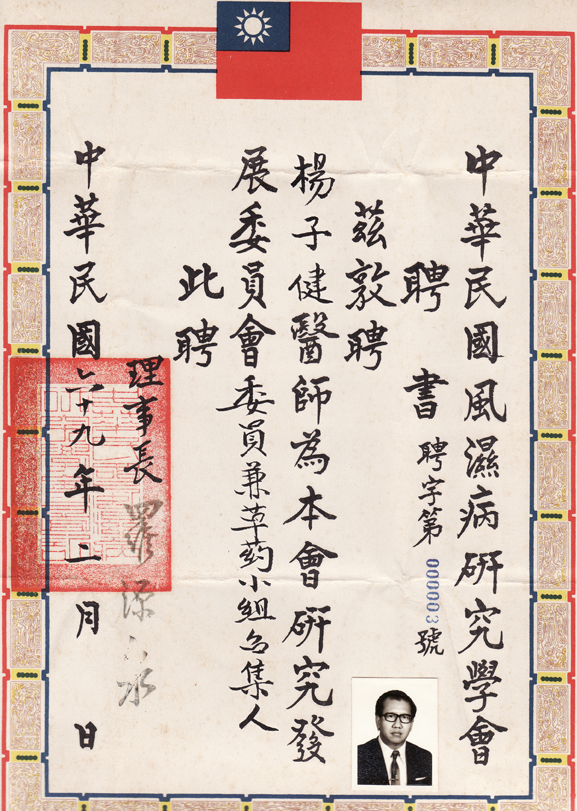 中華民國風濕病研究學會
聘書 聘字第000003號
茲敦聘
楊子健醫師為本會研究發
展委員會委員兼草药小組召集人
此聘
理事長 羅
中華民國六十九年二月 日